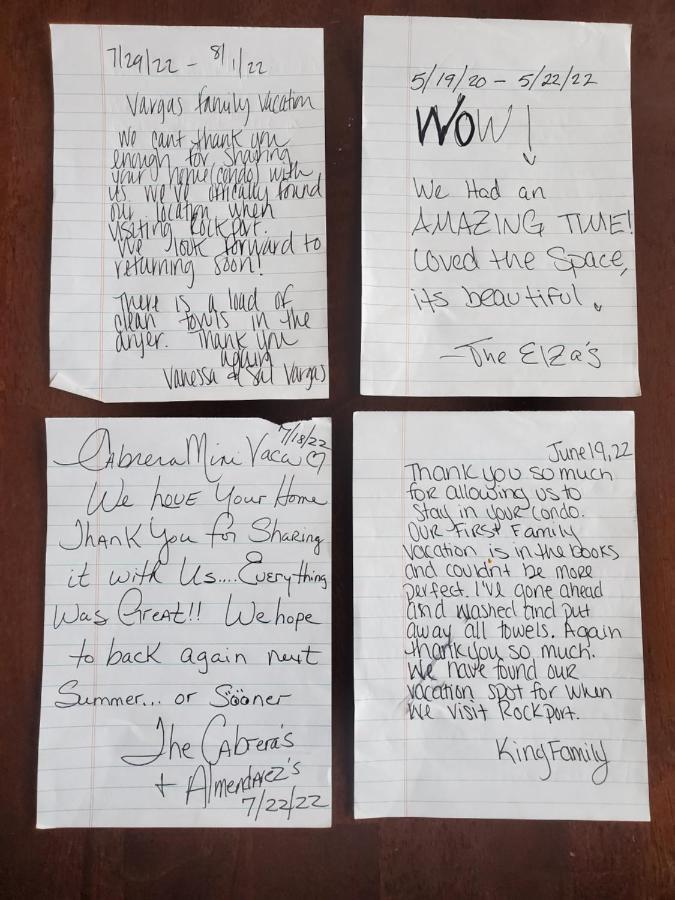 7/29/22 - 8/1/22
Vargas family vacation
We cant thank you
enough for sharing
your home (condo) with
us. We've offically found
our location when
visiting Rockport.
We look forward to
returning soon!
There is a load of
clean towls in the
dryer. Thank you
again
Vanessa & Sal Vargas
5/19/20 - 5/22/22
WOW!
We Had an
AMAZING TIME!
Loved the Space,
its beautiful.
-The Elza's
7/18/22
Cabrera Mini Vaca ♡
We love Your Home
Thank You for Sharing
it with Us.... Everything
Was Great!! We hope
to back again next
Summer... or Sööner
The Cabrera's
+ Almendarez's
7/22/22
June 19, 22
Thank you so much
for allowing us to
Stay in your condo.
Our First Family
vacation is in the books
and couldn't be more
perfect. I've gone ahead
and washed and put
away all towels. Again
thank you so much.
We have found our
vacation spot for when
We visit Rockport.
King Family